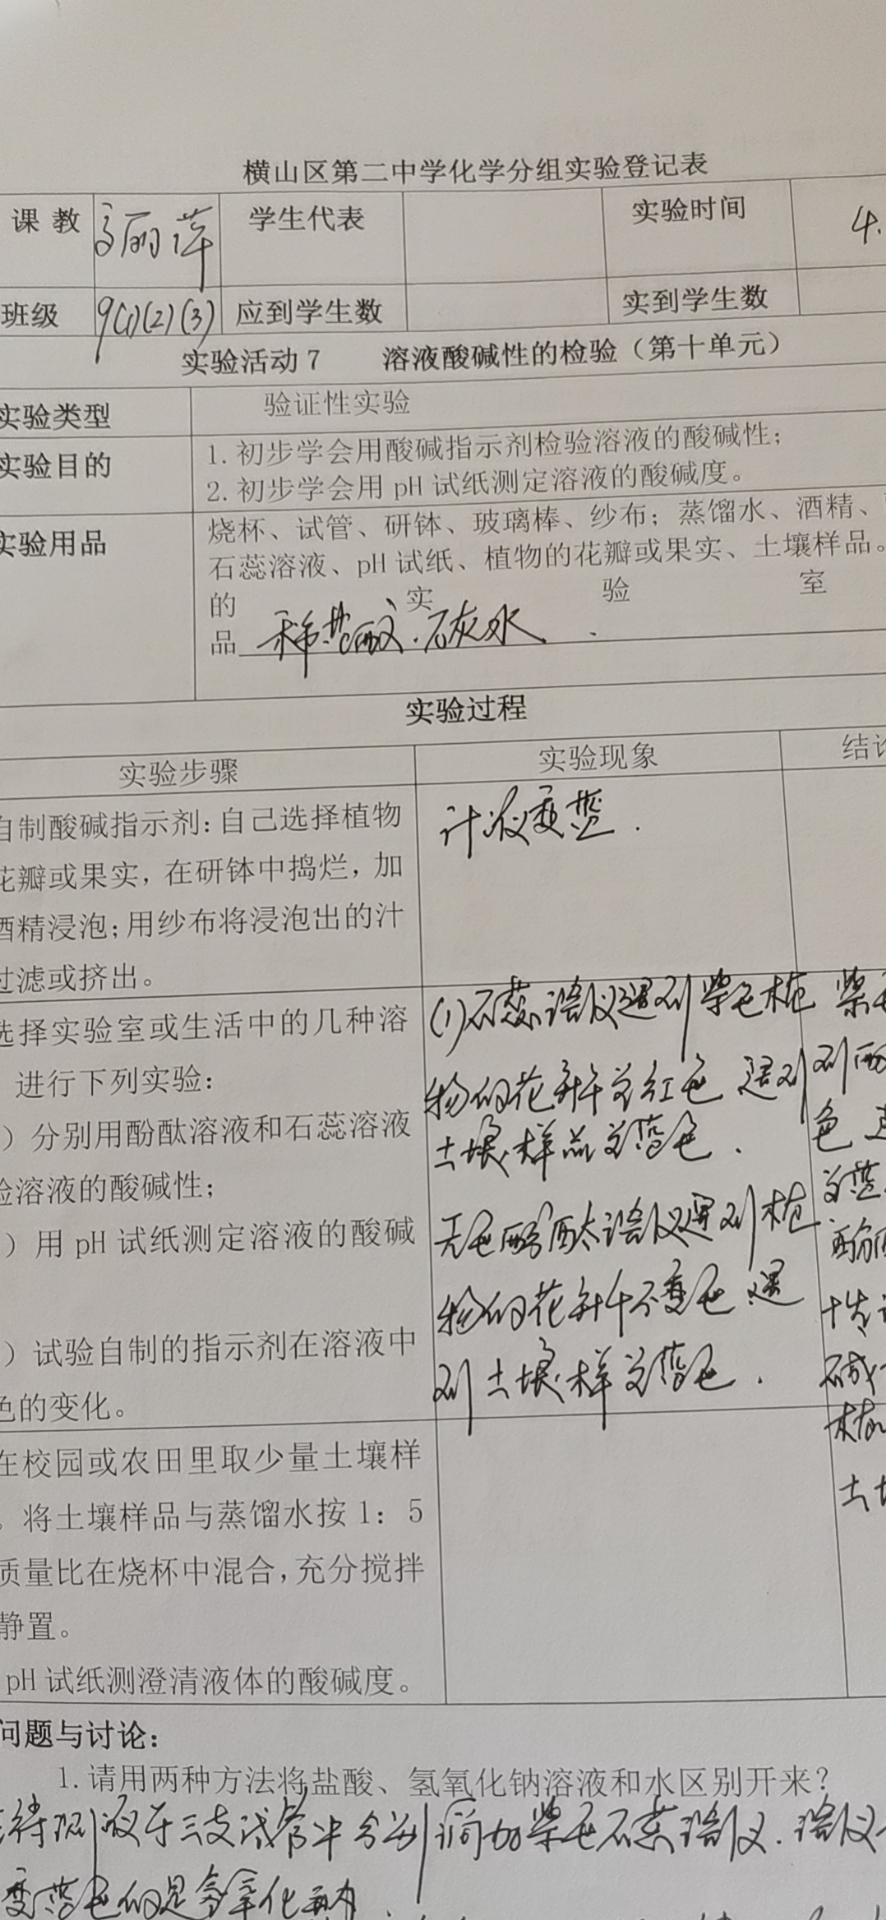 横山区第二中学化学分组实验登记表
课教 高丽萍 学生代表 实验时间 4.
班级 9(1)(2)(3) 应到学生数 实到学生数
实验活动7 溶液酸碱性的检验（第十单元）
实验类型 验证性实验
实验目的 1.初步学会用酸碱指示剂检验溶液的酸碱性；
2.初步学会用pH试纸测定溶液的酸碱度。
实验用品 烧杯、试管、研钵、玻璃棒、纱布；蒸馏水、酒精、
石蕊溶液、pH试纸、植物的花瓣或果实、土壤样品。
的 实 验 室
品 稀盐酸.石灰水.
实验过程
实验步骤 实验现象 结论
自制酸碱指示剂：自己选择植物 汁液变蓝.
花瓣或果实，在研钵中捣烂，加
酒精浸泡；用纱布将浸泡出的汁
过滤或挤出。
选择实验室或生活中的几种溶 (1)石蕊溶液遇到紫色植 紫
进行下列实验： 物的花瓣为红色 遇到
）分别用酚酞溶液和石蕊溶液 土壤样品为蓝色.
验溶液的酸碱性；
）用pH试纸测定溶液的酸碱 无色酚酞溶液遇到植
物的花瓣不变色 遇
）试验自制的指示剂在溶液中 到土壤样为蓝色.
色的变化。
在校园或农田里取少量土壤样
。将土壤样品与蒸馏水按1：5
质量比在烧杯中混合，充分搅拌
静置。
pH试纸测澄清液体的酸碱度。
问题与讨论：
1.请用两种方法将盐酸、氢氧化钠溶液和水区别开来？
待测液于三支试管中分别滴加紫色石蕊溶液.溶液
变蓝色的是氢氧化钠